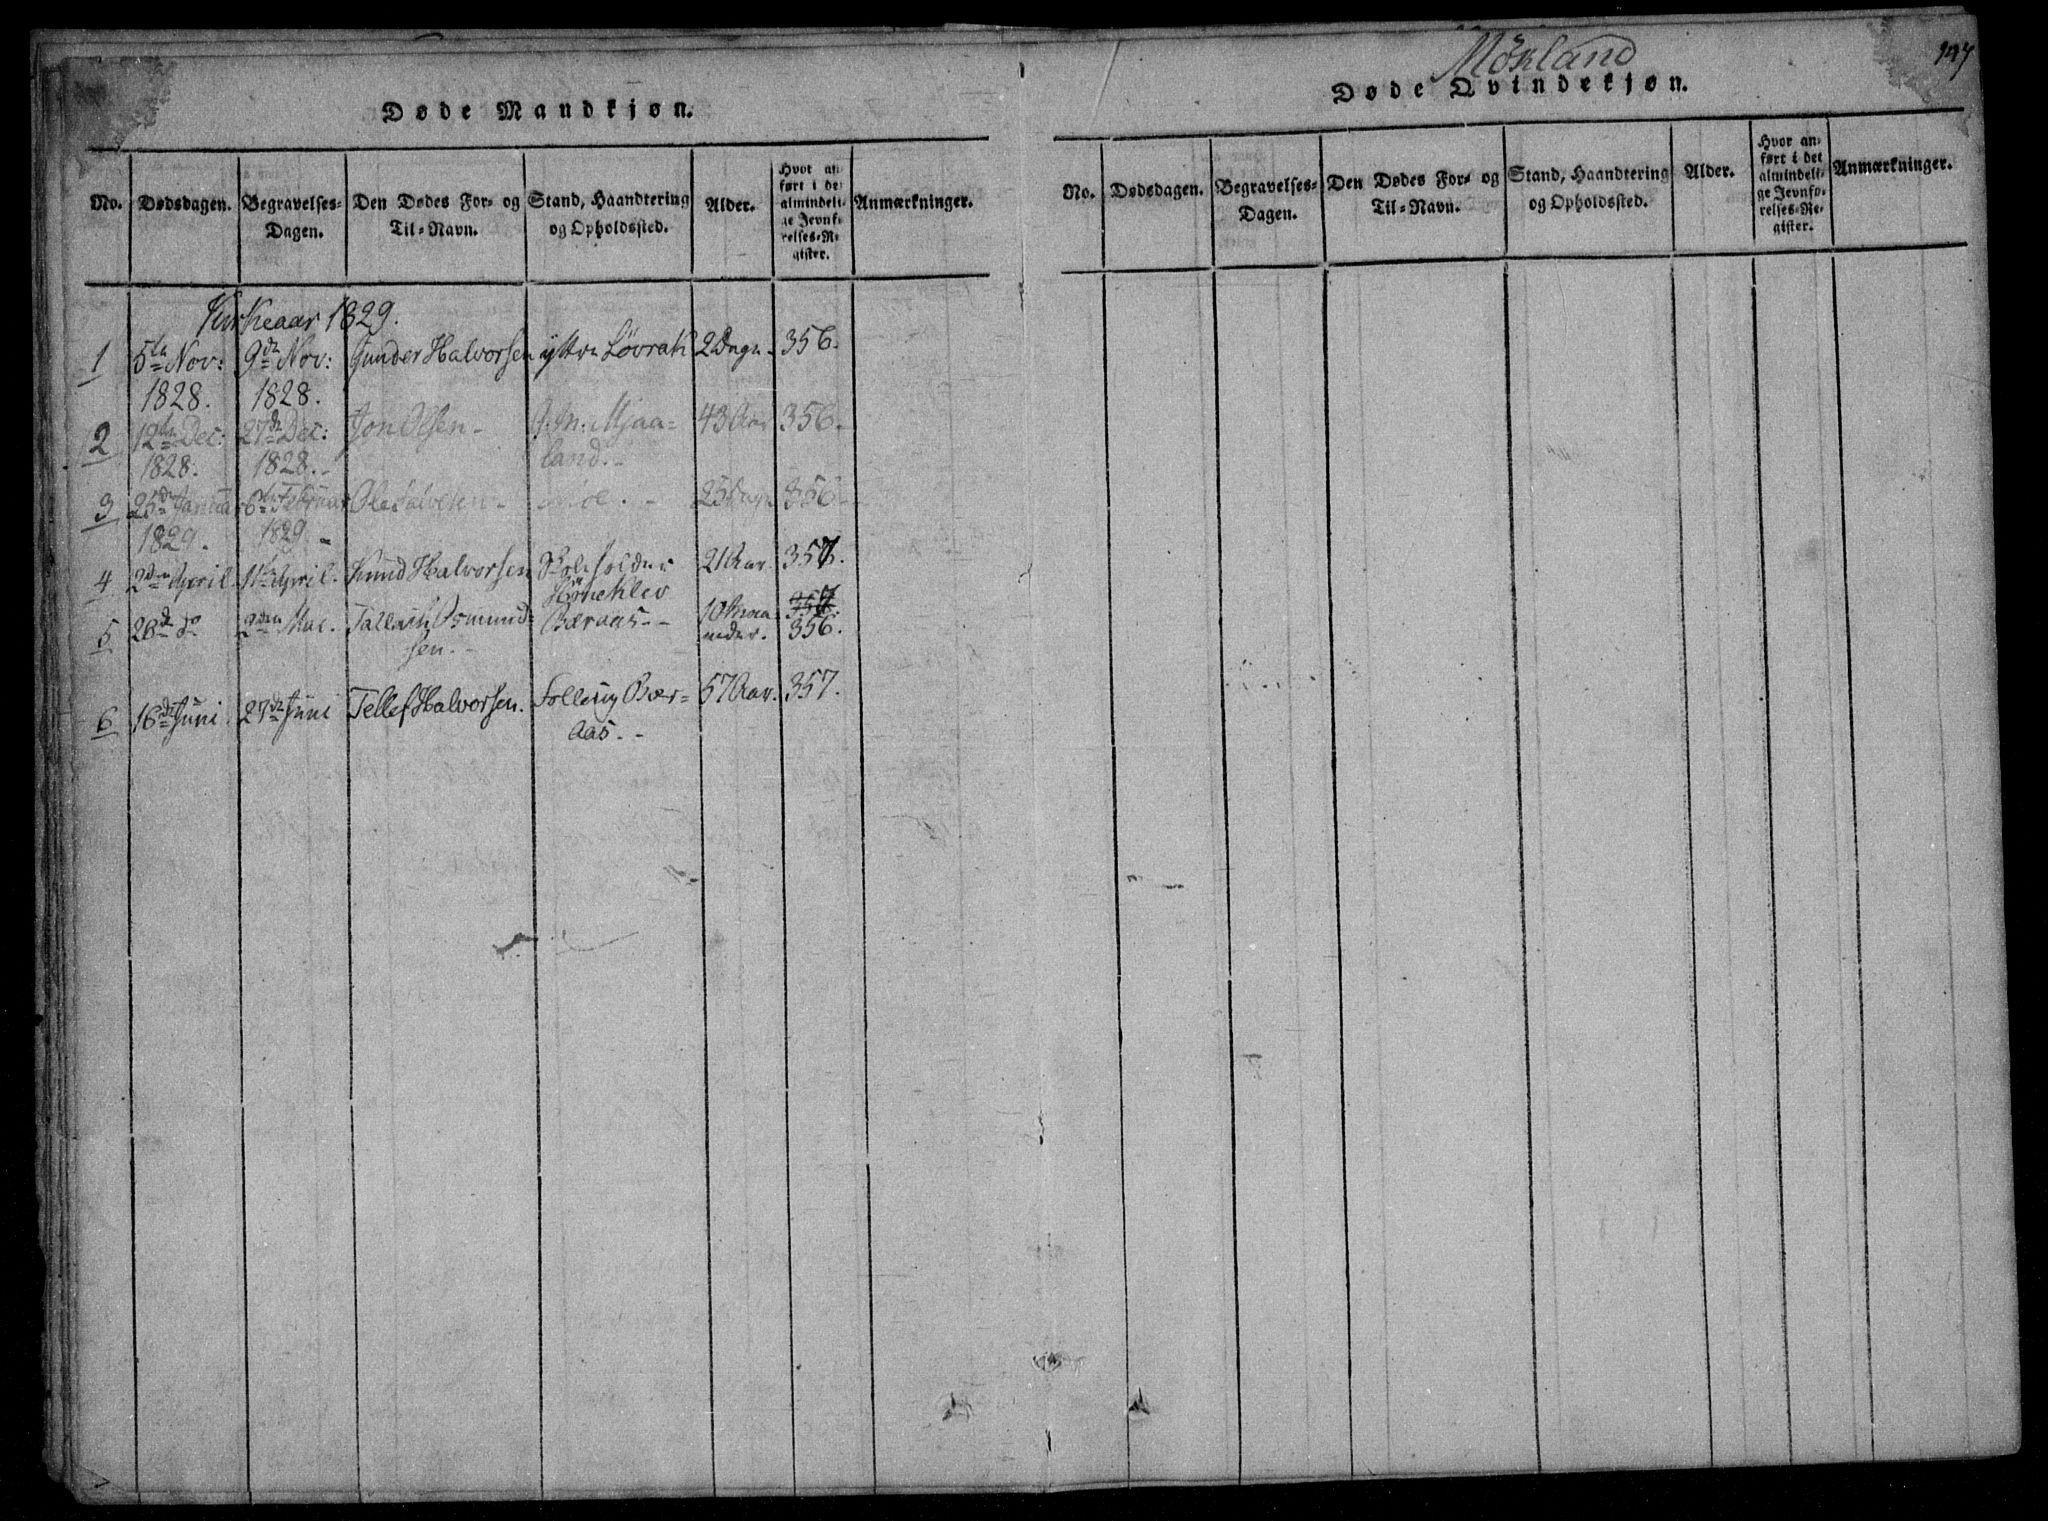 Døde Mandkjøn.
No. Dødsdagen. Begravelses-Dagen. Den Dødes For- og Til-Navn. Stand, Haandtering og Opholdssted. Alder. Hvor anført i de almindelige Jevnførelses-Register. Anmærkninger.
Kirkeaar 1829.
1 5te Nov: 1828. 9de Nov: 1828. Gunder Halvorsen yttre Løvrak 2 Dage. 356.
2 12te Dec: 1828. 27de Dec: 1828. Jon Olsen G: M: Mjaaland. 43 Aar 356.
3 25de Januar 1829. 6te Februar 1829. Ole Salvesen Moe. 25 Dage 356
4 2den April 11te April. Knud Halvorsen 21 Aar. 357.
5 26de do 2den Mai. Tallach Osmundsen. Beraas 10 Maaneder. 357. 356.
6 16de Juni 27de Juni Tellef Halvorsen. Beraas. 57 Aar. 357.
Mörland
147
Døde Qvindekjøn.
No. Dødsdagen. Begravelses-Dagen. Den Dødes For- og Til-Navn. Stand, Haandtering og Opholdssted. Alder. Hvor anført i det almindelige Jevnførelses-Register. Anmærkninger.